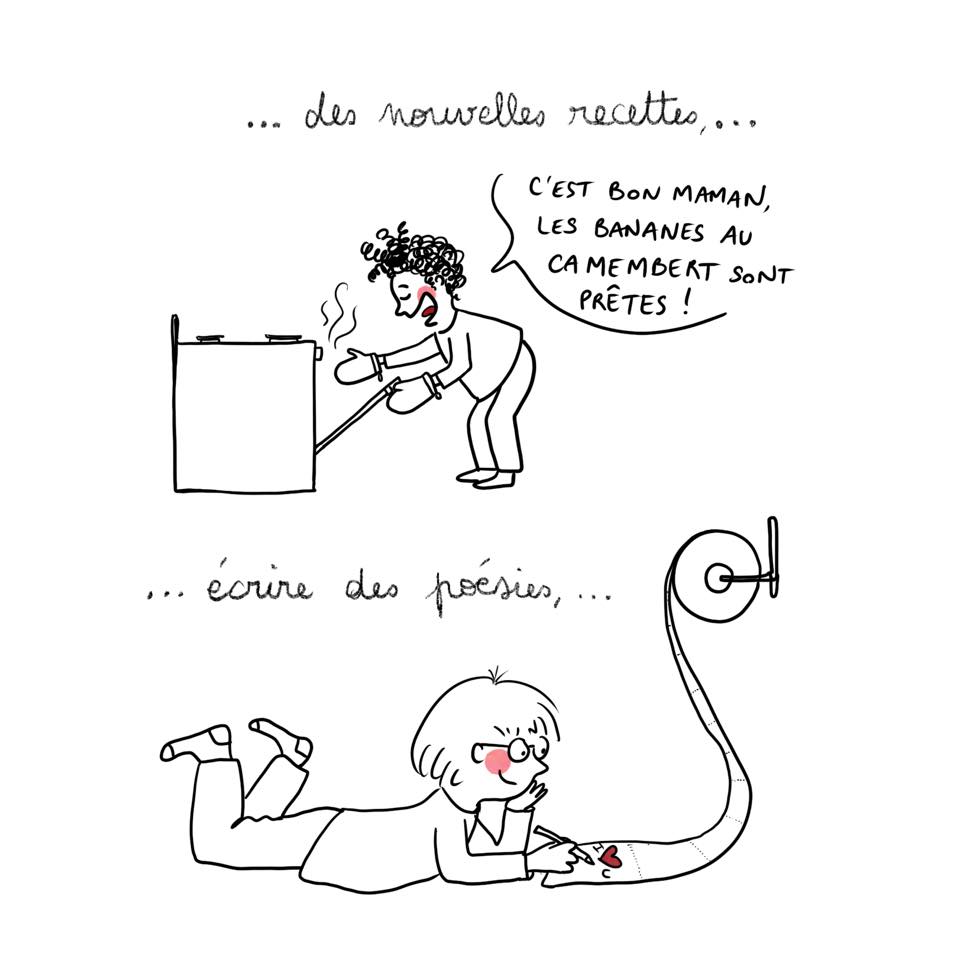 ... des nouvelles recettes,...
C'EST BON MAMAN,
LES BANANES AU
CAMEMBERT SONT
PRÊTES !
... écrire des poésies, ...
I ♥ U